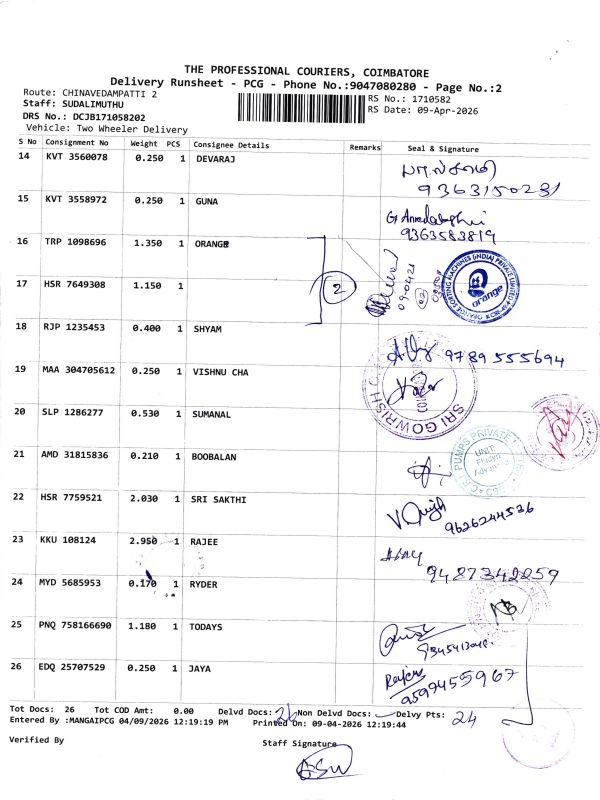 THE PROFESSIONAL COURIERS, COIMBATORE
Delivery Runsheet - PCG - Phone No.:9047080280 - Page No.:2
Route: CHINAVEDAMPATTI 2
RS No.: 1710582
Staff: SUDALIMUTHU
RS Date: 09-Apr-2026
DRS No.: DCJB171058202
Vehicle: Two Wheeler Delivery
S No Consignment No Weight PCS Consignee Details Remarks Seal & Signature
14 KVT 3560078 0.250 1 DEVARAJ
9363150231
15 KVT 3558972 0.250 1 GUNA
9363583819
16 TRP 1098696 1.350 1 ORANGE
17 HSR 7649308 1.150 1 2
orange
18 RJP 1235453 0.400 1 SHYAM 9789 555694
19 MAA 304705612 0.250 1 VISHNU CHA
SRI GOWRISH
20 SLP 1286277 0.530 1 SUMANAL
21 AMD 31815836 0.210 1 BOOBALAN
PUMPS PRIVATE
UNIT
22 HSR 7759521 2.030 1 SRI SAKTHI
9626244536
23 KKU 108124 2.950 1 RAJEE
9487342259
24 MYD 5685953 0.170 1 RYDER
25 PNQ 758166690 1.180 1 TODAYS
26 EDQ 25707529 0.250 1 JAYA
9599455967
Tot Docs: 26 Tot COD Amt: 0.00 Delvd Docs: 26 Non Delvd Docs: Delvy Pts: 24
Entered By :MANGAIPCG 04/09/2026 12:19:19 PM Printed On: 09-04-2026 12:19:44
Verified By
Staff Signature